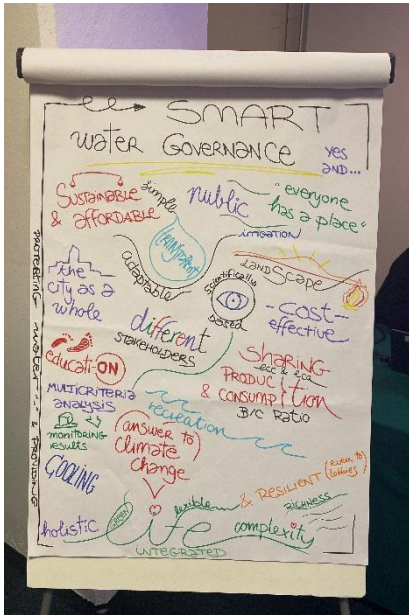 SMART
water GOVERNANCE
YES
AND...
SUSTAINABLE
& AFFORDABLE
simple
public
"everyone
has a place"
TRANSPARENT
IRRIGATION
adaptable
LANDSCAPE
the
city as a
whole
Scientifically
based
-COST-
effective
different
STAKEHOLDERS
educatiON
SHARING
PRODUCTION
& CONSUMPTION
B/C RATIO
MULTICRITERIA
analysis
recreation
monitoring
results
(answer to)
climate
change
COOLING
flexible
& RESILIENT
(even to
lotteries)
RICHNESS
holistic
GREEN
life
complexity
INTEGRATED
PROTECTING water
& PROVIDING